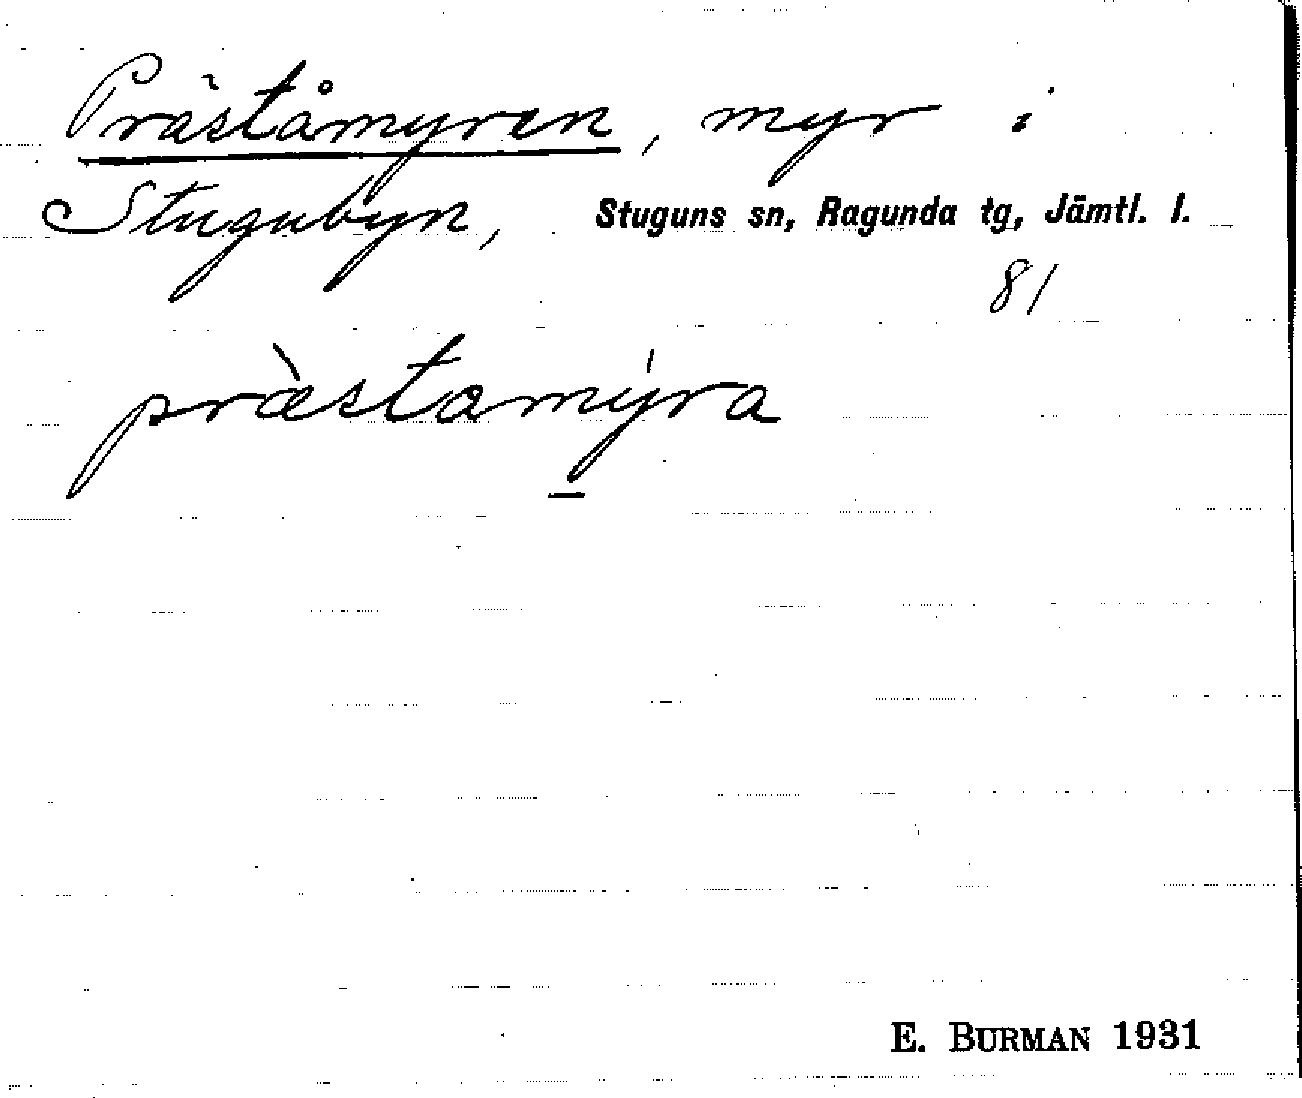 Präståmyren, myr i
Stugubyn, Stuguns sn, Ragunda tg, Jämtl. l.
81
præ̀stamýra
E. BURMAN 1931